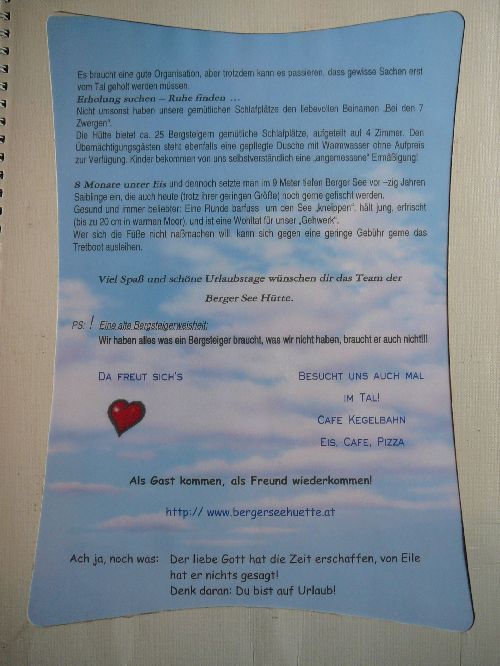 Es braucht eine gute Organisation, aber trotzdem kann es passieren, dass gewisse Sachen erst
vom Tal geholt werden müssen.
Erholung suchen – Ruhe finden …
Nicht umsonst haben unsere gemütlichen Schlafplätze den liebevollen Beinamen „Bei den 7
Zwergen“.
Die Hütte bietet ca. 25 Bergsteigern gemütliche Schlafplätze, aufgeteilt auf 4 Zimmer. Den
Übernächtigungsgästen steht ebenfalls eine gepflegte Dusche mit Warmwasser ohne Aufpreis
zur Verfügung. Kinder bekommen von uns selbstverständlich eine „angemessene“ Ermäßigung!
8 Monate unter Eis und dennoch setzte man im 9 Meter tiefen Berger See vor –zig Jahren
Saiblinge ein, die auch heute (trotz ihrer geringen Größe) noch gerne gefischt werden.
Gesund und immer beliebter: Eine Runde barfuss um den See „kneippen“, hält jung, erfrischt
(bis zu 20 cm in warmen Moor), und ist eine Wohltat für unser „Gehwerk“.
Wer sich die Füße nicht naßmachen will, kann sich gegen eine geringe Gebühr gerne das
Tretboot ausleihen.
Viel Spaß und schöne Urlaubstage wünschen dir das Team der
Berger See Hütte.
PS: ! Eine alte Bergsteigerweisheit:
Wir haben alles was ein Bergsteiger braucht, was wir nicht haben, braucht er auch nicht!!!
DA FREUT SICH'S
BESUCHT UNS AUCH MAL
IM TAL!
CAFE KEGELBAHN
EIS, CAFE, PIZZA
Als Gast kommen, als Freund wiederkommen!
http:// www.bergerseehuette.at
Ach ja, noch was: Der liebe Gott hat die Zeit erschaffen, von Eile
hat er nichts gesagt!
Denk daran: Du bist auf Urlaub!